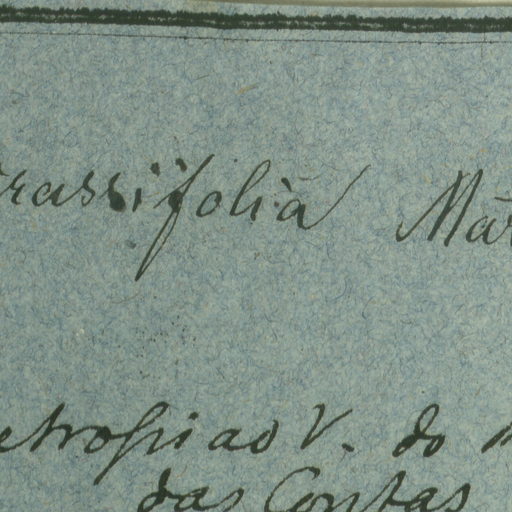 crassifolia Mar
etropiao V. do
das Contas